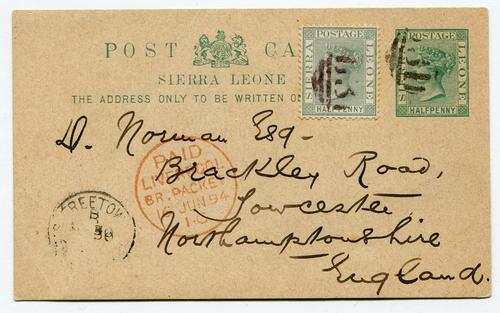 POST CA
SIERRA LEONE
THE ADDRESS ONLY TO BE WRITTEN ON
SIERRA POSTAGE LEONE
HALFPENNY
SIERRA POSTAGE LEONE
HALFPENNY
D. Norman Esq-
Brackley Road,
Towcester
Northamptonshire
England.
PAID
LIVERPOOL
BR. PACKET
JUN 94
FREETOW
B